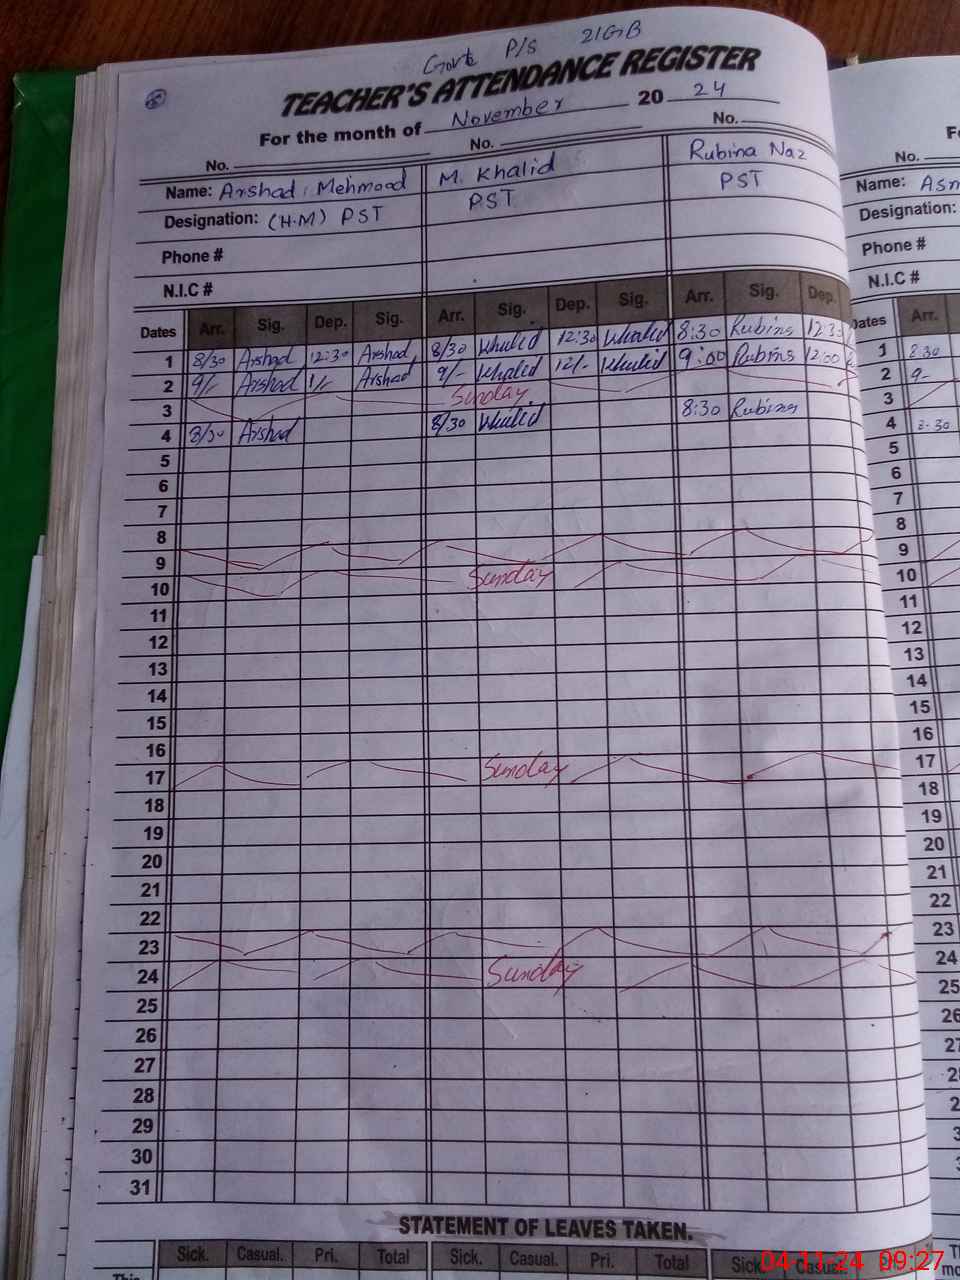 Govt P/S 21GB
TEACHER'S ATTENDANCE REGISTER
For the month of November 20 24
No. No. No. No.
Name: Arshad Mehmood M. Khalid Rubina Naz Name: Asm
Designation: (H.M) PST PST PST Designation:
Phone # Phone #
N.I.C # N.I.C #
Dates Arr. Sig. Dep. Sig. Arr. Sig. Dep. Sig. Arr. Sig. Dep. Dates Arr.
1 8/30 Arshad 12:30 Arshad 8/30 Khalid 12:30 Khalid 8:30 Rubina 12:3 1 8:30
2 9/- Arshad 1/- Arshad 9/- Khalid 12/- Khalid 9:00 Rubina 12:00 2 9-
3 Sunday 3
4 8/30 Arshad 8/30 Khalid 8:30 Rubina 4 8-30
5 5
6 6
7 7
8 8
9 9
10 Sunday 10
11 11
12 12
13 13
14 14
15 15
16 16
17 Sunday 17
18 18
19 19
20 20
21 21
22 22
23 23
24 Sunday 24
25 25
26 26
27 27
28
29
30
31
STATEMENT OF LEAVES TAKEN.
Sick. Casual. Pri. Total Sick. Casual. Pri. Total Sick. Casual.
This
04-11-24 09:27